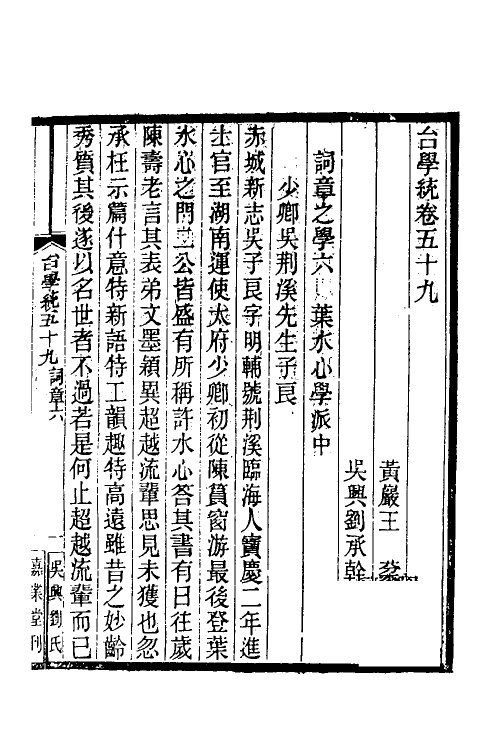 台學統卷五十九
黃巖王
吳興劉承幹
詞章之學六 葉水心學派中
少卿吳荆溪先生子良
赤城新志吳子良字明輔號荆溪臨海人寶慶二年進
士官至湖南運使太府少卿初從陳篔窗游最後登葉
水心之門二公皆盛有所稱許水心答其書有曰往歲
陳壽老言其表弟文墨穎異超越流輩思見未獲也忽
承枉示篇什意特新語特工韻趣特高遠雖昔之妙齡
秀質其後遂以名世者不過若是何止超越流輩而已
台學統五十九 詞章六 一
吳興劉氏
嘉業堂刊